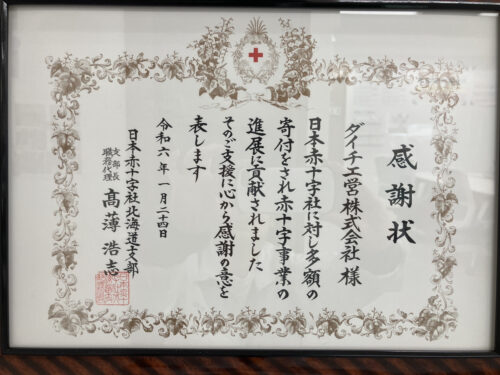 感謝状
ダイチ工営株式会社 様
日本赤十字社に対し多額の
寄付をされ赤十字事業の
進展に貢献されました
そのご支援に心から感謝の意を
表します
令和六年一月二十四日
日本赤十字社北海道支部
支部長
職務代理
髙薄浩志